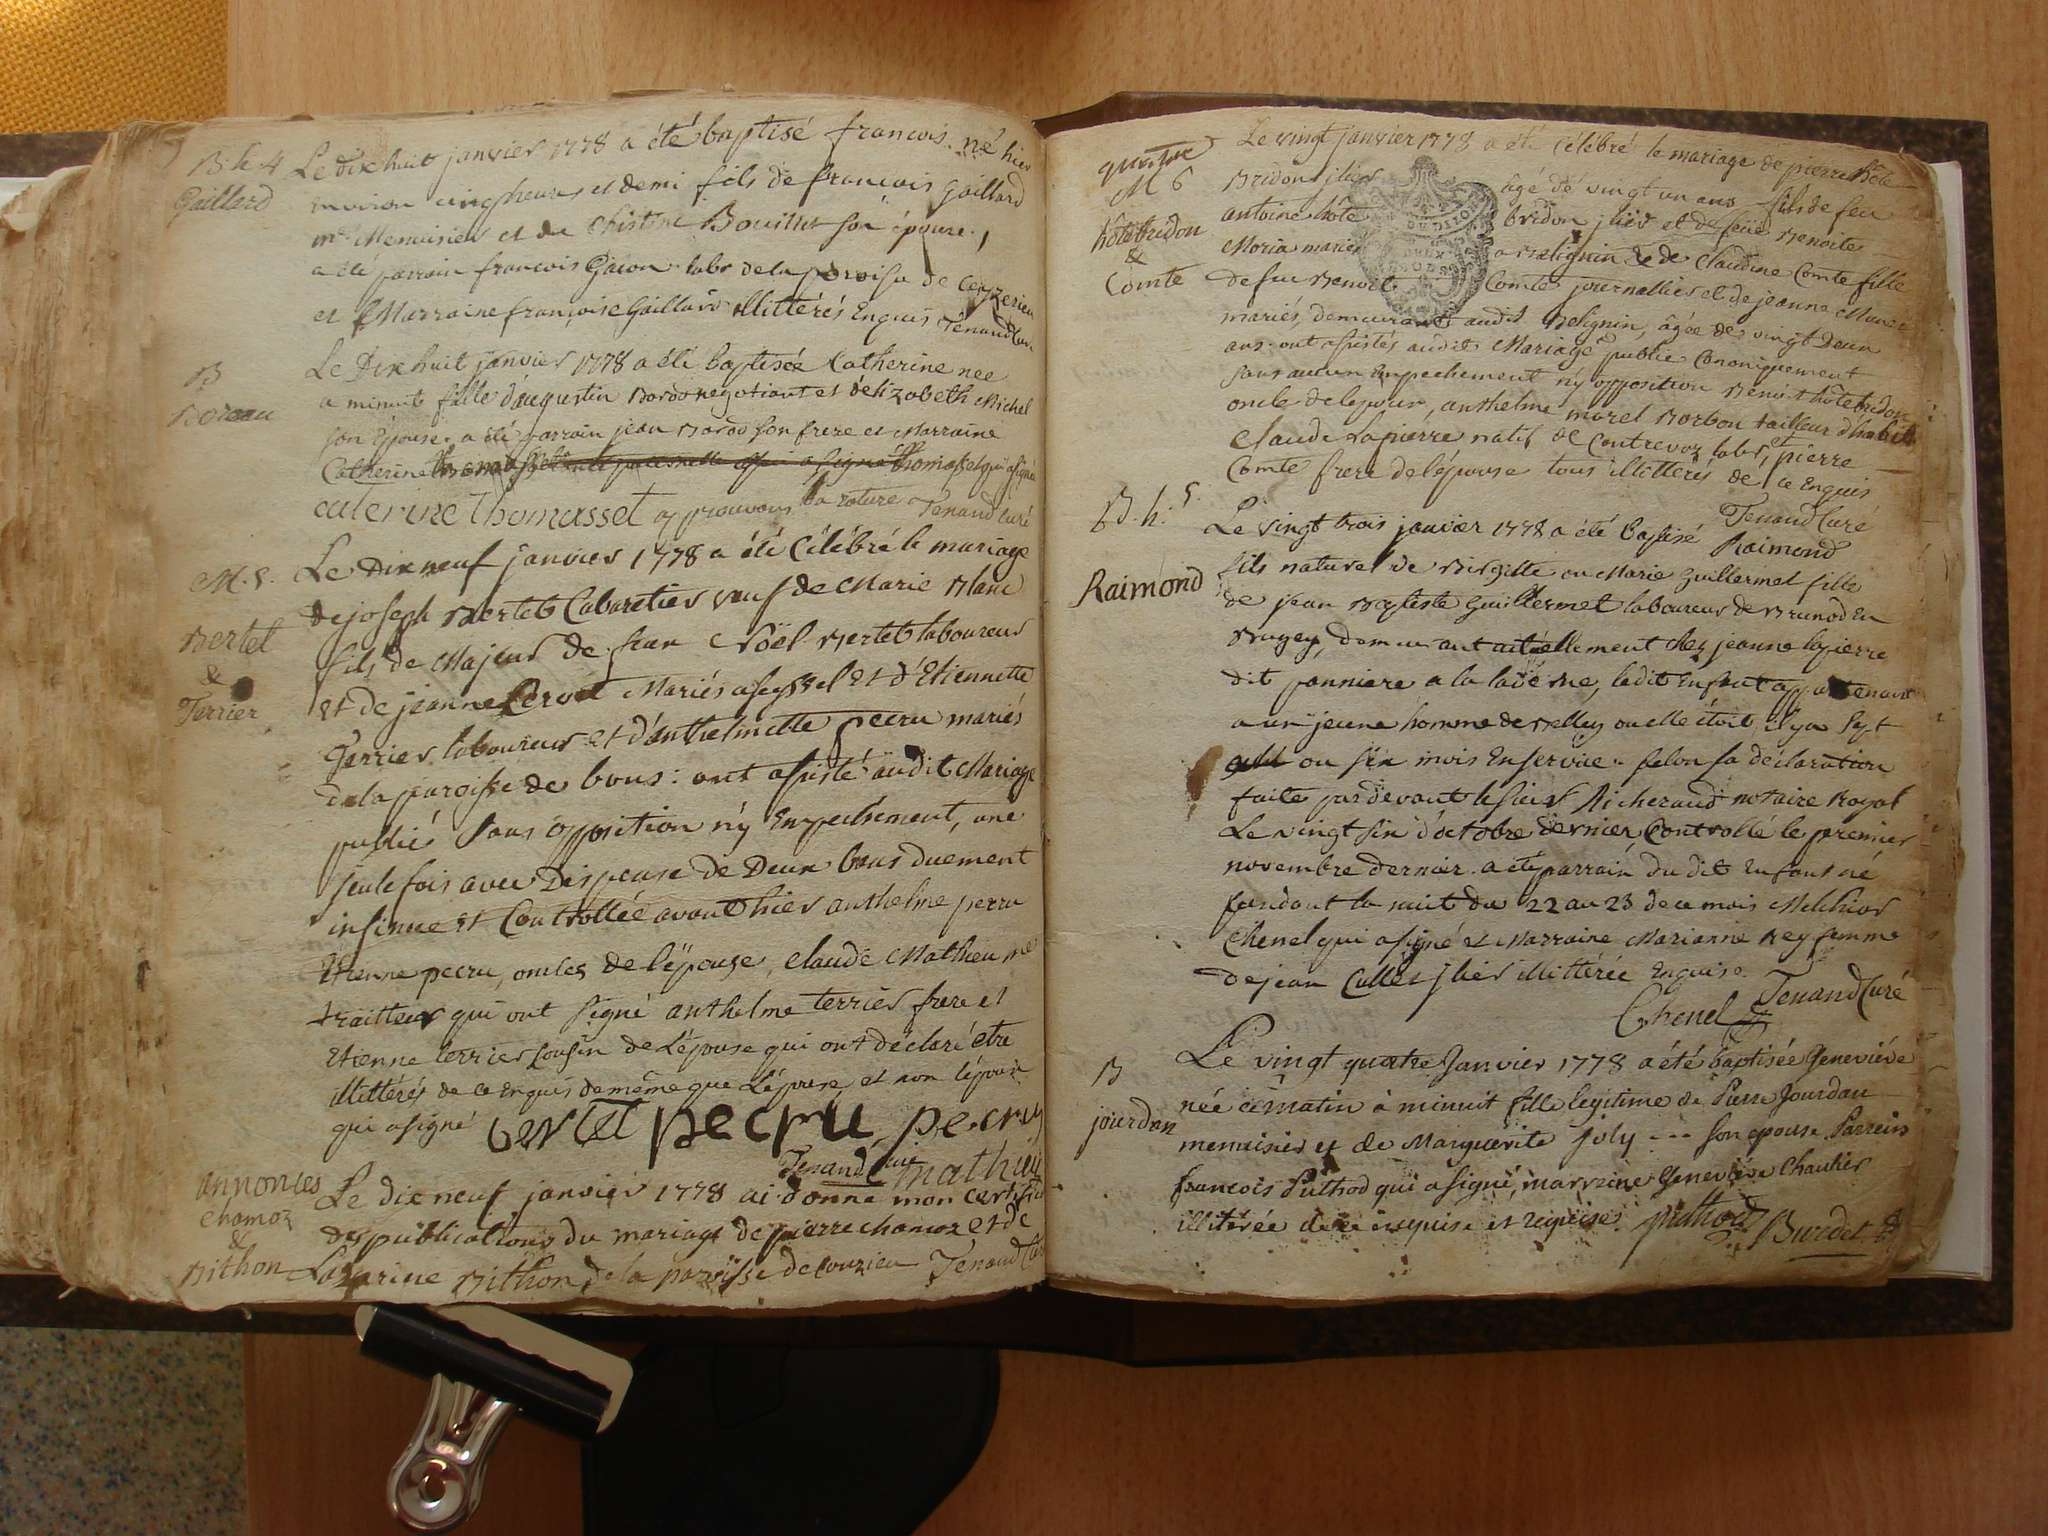 B. h. 4
Gaillard
Le Dix huit janvier 1778 a été baptisé francois. né hier
environ cinq heures et demi fils de francois Gaillard
mre Menuisier et de Christine Bouillet son épouse,
a été parrain francois Gacon labr de la paroisse de Ceyzerieu
et Marraine françoise Gaillard illittérés Enquis Tenand Curé
B
Boreau
Le Dix huit janvier 1778 a été baptisée Catherine nee
a minuit fille d'augustin Bordo negotiant et d'élizabeth Michel
son Epouse. a été parrain jean Bordo son frere et Marraine
Catherine thomasset qui a signé
caterine thomasset approuvons la rature Tenand Curé
M. 5.
Bertet
&
Terrier
Le Dix neuf janvier 1778 a été Célébré le mariage
de joseph Bertet Cabaretier veuf de Marie Blanc
fils de Majeur de Noël Bertet laboureur
et de jeanne Mariés a seyssel Et d'Etiennette
Terrier laboureur et d'anthelmette pecru mariés
de la paroisse de bons: ont assisté audit Mariage
publié sans opposition ny Empechement, une
seule fois avec Dispense de Deux bans duement
insinuée et Controllée avant hier anthelme pecru
Etienne pecru, oncles de l'épouse, claude Mathieu me
traitteur qui ont signé anthelme terrier frere et
Etienne terrier cousin de L'épouse qui ont déclaré être
illittérés de ce Enquis de même que L'épouse, et non l'époux
qui a signé bertet pecru pecru
Tenand Curé mathieu
annonces
chamoz
&
Bithon
Le dix neuf janvier 1778 ai donné mon certificat
des publications du mariage de pierre chamoz et de
Lazarine Bithon de la paroisse de couzieu Tenand Curé
quatre
M 6
hôte bridon
&
Comte
Le vingt janvier 1778 a été Célébré le mariage de pierre hôte
Bridon jlier âgé dé vingt un ans fils de feu
antoine hôte bridon jlier et de feüe Benoite
Moria mariés a Belignin & de Claudine Comte fille
de feu Benoit Comte journallier et de jeanne
mariés, demeurants audit Belignin, âgée de vingt Deux
ans. ont assistés audit Mariage publié Canoniquement
sans aucun Empechement ny opposition Benoit hôte bridon
oncle de l'epoux, anthelme morel Borbon tailleur d'habit
Claude Lapierre natif de Contrevoz labr, et pierre
Comte frere de l'épouse tous illittérés de ce Enquis
Tenand Curé
B. h. 5.
Raimond
Le vingt trois janvier 1778 a été Baptisé Raimond
fils naturel de Birgitte ou Marie Guillermet fille
de jean Baptiste Guillermet laboureur de Brenod En
Bugey, demeurant actuellement chez jeanne lapierre
dit panniere a la ledit Enfant appartenant
a un jeune homme de Belley ou elle étoit il y a sept
ou six mois En service. selon sa déclaration
faite pardevant le sieur Richerand notaire Royal
Le vingt six d'octobre dernier, Controllé le premier
novembre dernier. a été parrain du dit Enfant né
pendant la nuit du 22 au 23 de ce mois Melchior
Chenel qui a signé et Marraine Marianne Rey femme
de jean Cullet jlier illittérée Enquise
Chenel Tenand Curé
B
jourdan
Le vingt quatre Janvier 1778 a été baptisée Geneviéve
née ce matin à minuit fille legitime de Pierre Jourdan
menuisier et de Marguerite joly --- son epouse. Parrein
francois Puthod qui a signé, marreine Geneviéve Chautier
illitérée de ce enquise et requise. puthod Burdet